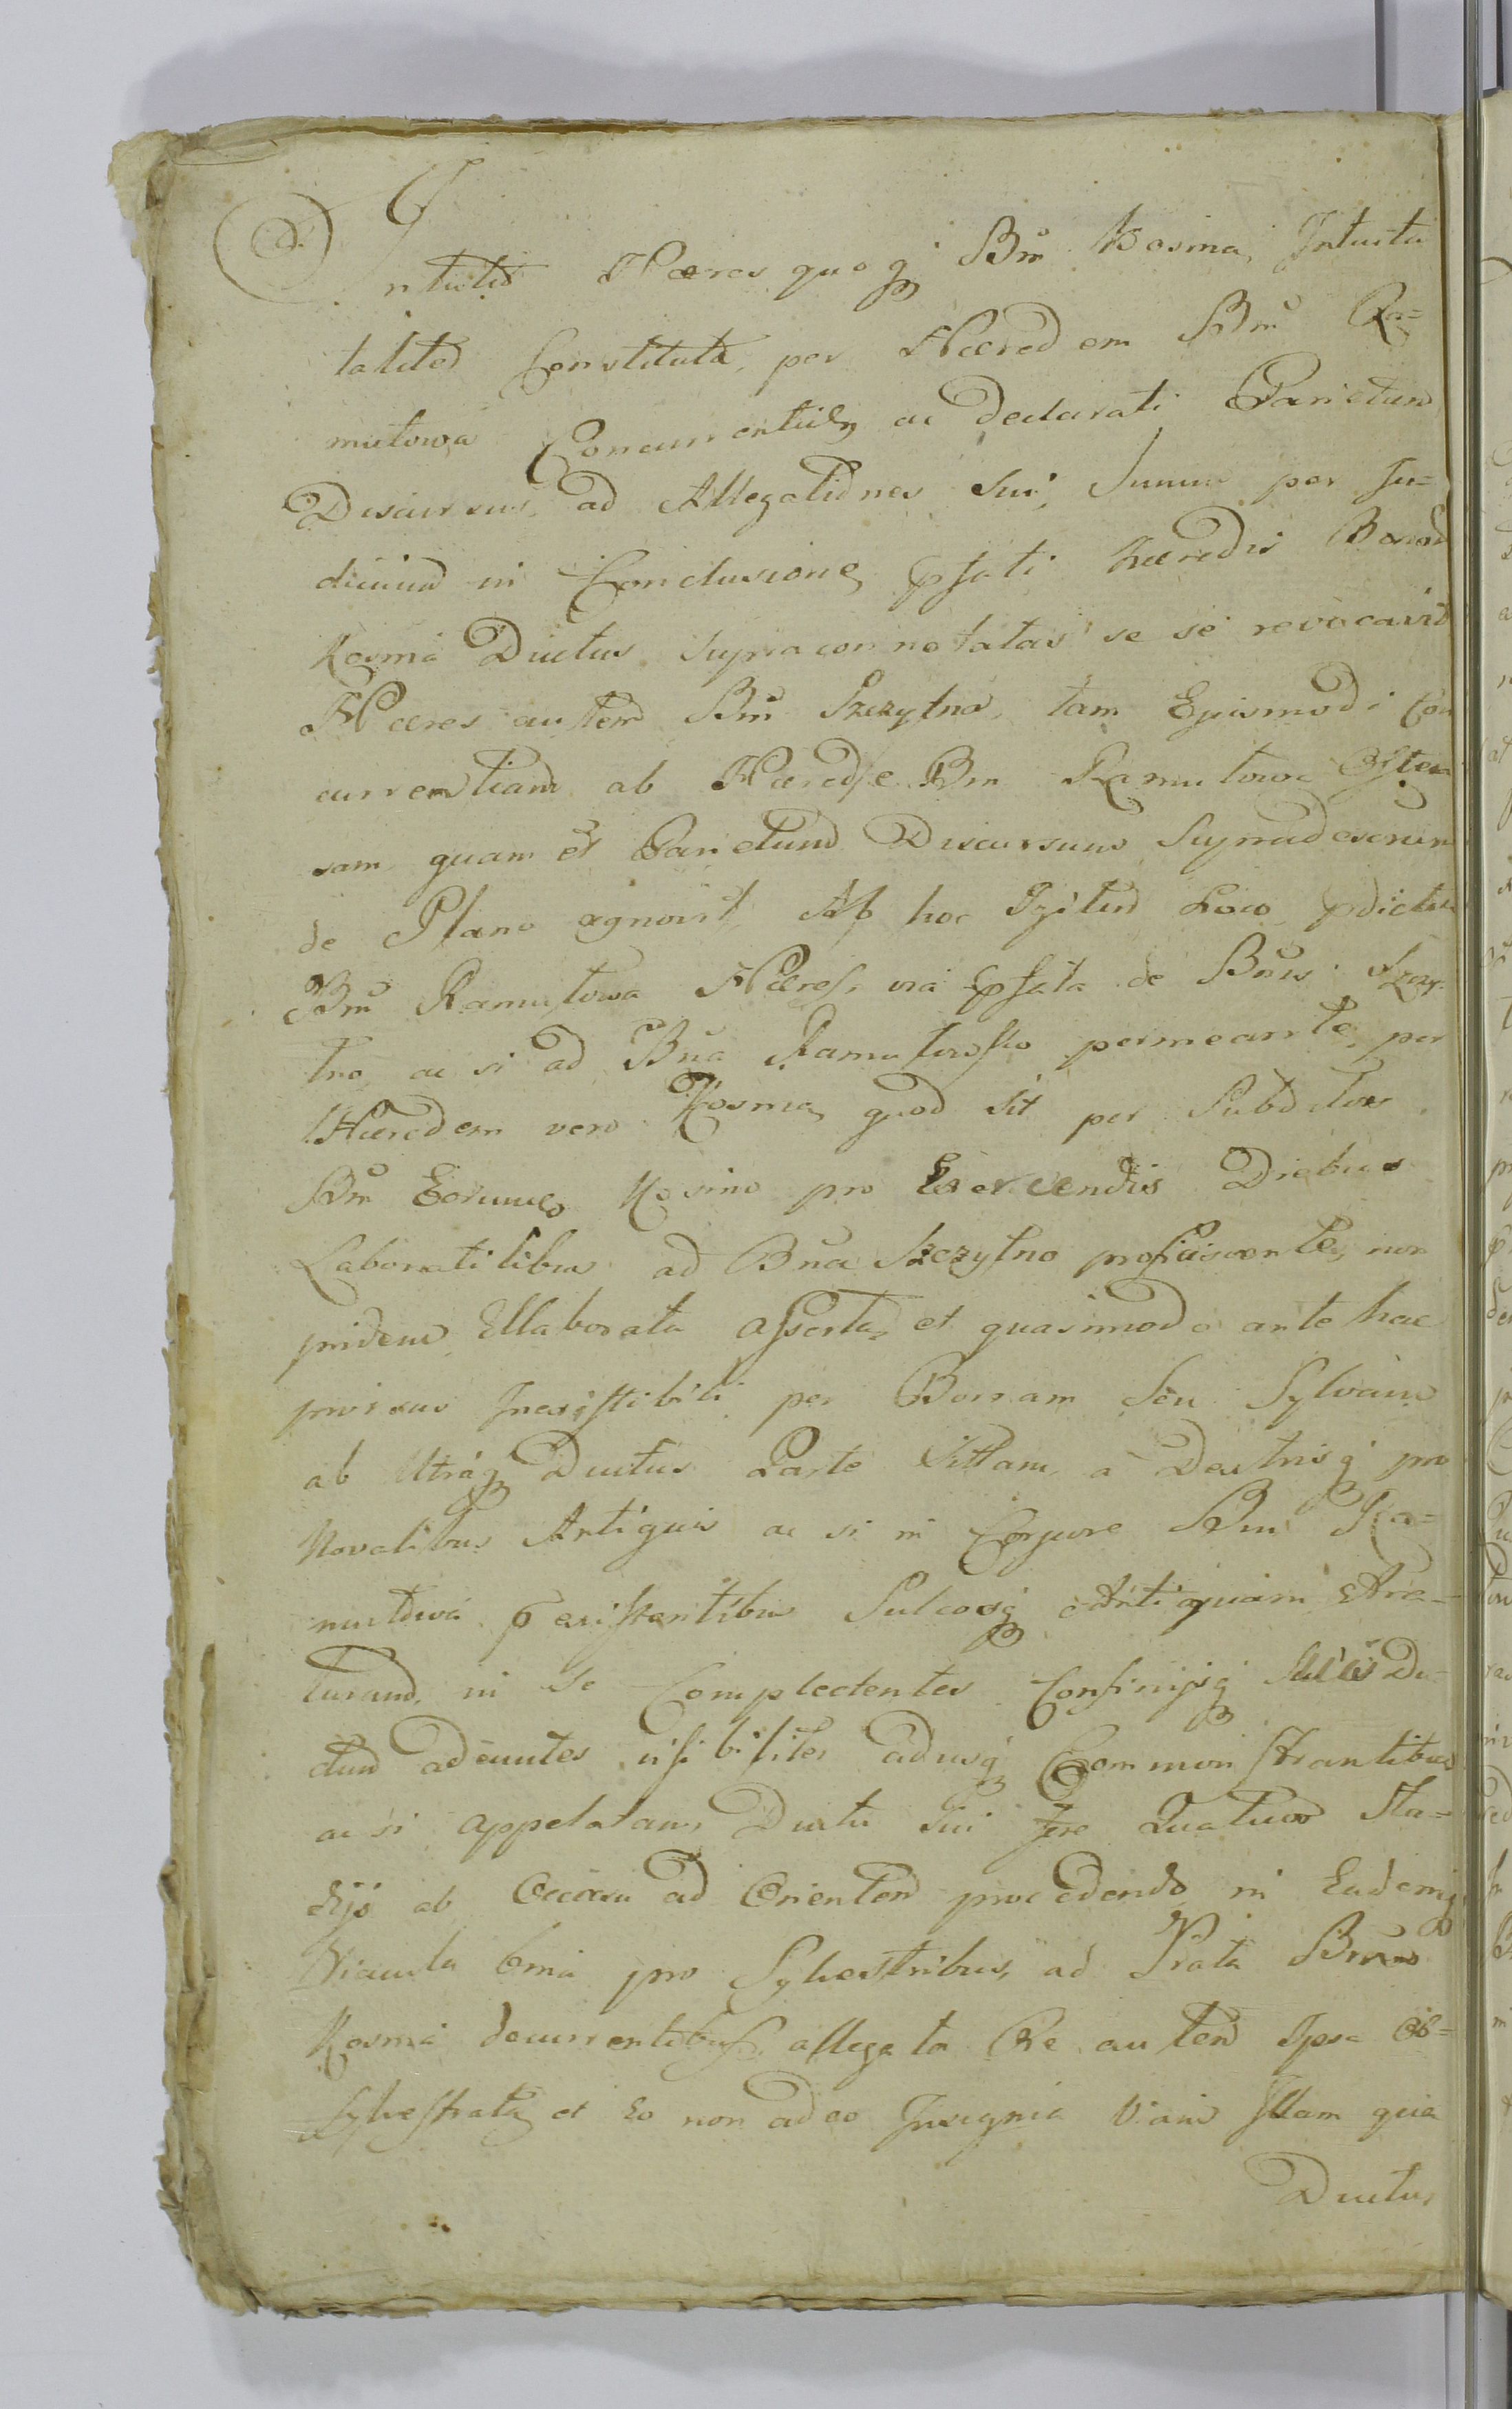 Haeres quoq Bnr Kosma, Intuitu
talited Constituta, per Haeredem Bnr Ra=
mutowa Concurrentiae ac declarati Parietum
Discursus, ad Allegationes Sui, Suum per Ju=
dicium in Conclusione pfati Haeredis Bonor
Kosma Ductus supraconnotatas se se revocavit
Haeres autem Bnr Szczytno, tam Ejusmodi Con
currentiam ab Haerede Bnr Ramutowa Osten
sam quam et Parietum Discursum
de Plano agnovit, Ab hoc Igitur Loco pdictus
Bnr Ramutowa Haeres, via pfata de Bnis Szczy
tno, ac si ad Bna permeante, per
Haeredem vero Kosma, quod sit per Subditos
Bnr Eorum Kosma pro Exercendis Diebus
Laboratilibus ad Bna Szczytno proficiscente, non
pridem Ellaborata asserta, et quasimodo ante hac
prorsus Inexistibili per Borram Seu Sylvam
ab Utraq Ductus Parte Sittam, a Dextrisq pro
Novalibus Antiquis ac si in Corpore Bnr Ra=
mutowa existentibus Sulcosq Antiquam Ara=
turam in se Complectentes Confinijsq Du=
ctum adeuntes visibiliter adusq Commonstrantibus
ac si appelatam, Ductu sui fere Quatuor Sta=
dijs ab Occasu ad Orientem procedendo in Eademq
Viacula pro Sylvestribus, ad Prata Bnr
Kosma decurrentibus, allegata Re autem Ipsa Ob=
sylvestrata et Eo non adeo Insignia Viam Illam quia
Ductus